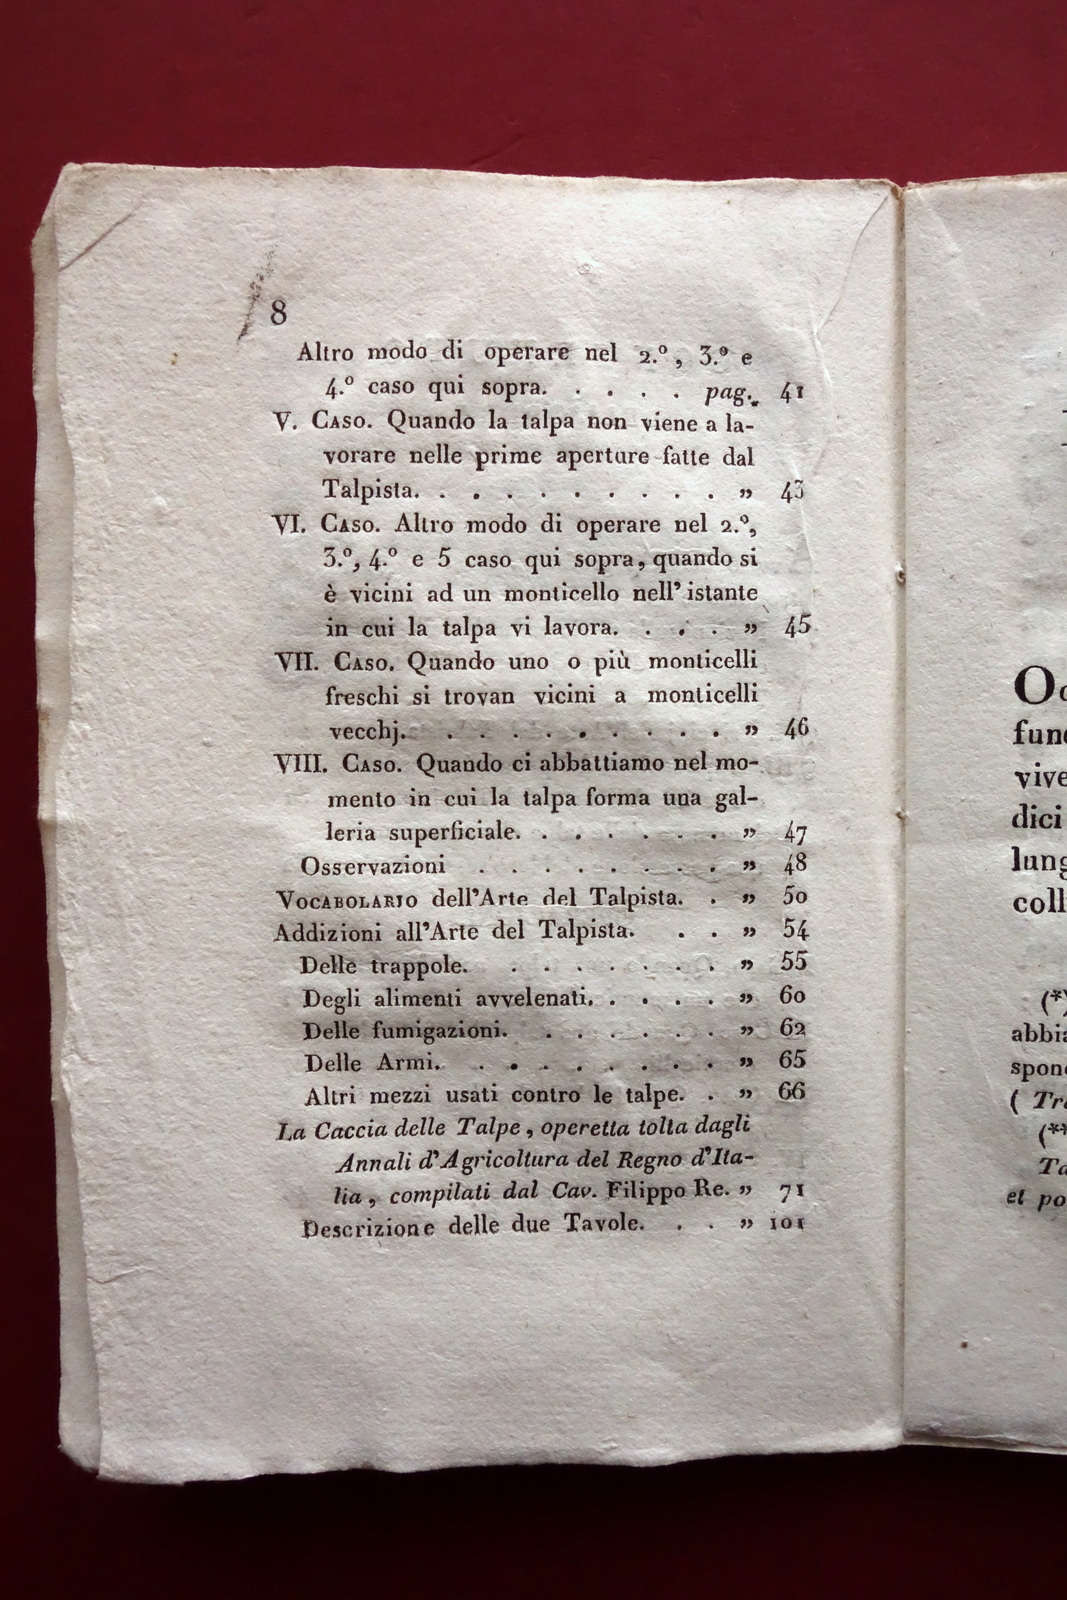 8
Altro modo di operare nel 2.º, 3.º e
4.º caso qui sopra. . . . . pag. 41
V. Caso. Quando la talpa non viene a la-
vorare nelle prime aperture fatte dal
Talpista. . . . . . . . . . . „ 43
VI. Caso. Altro modo di operare nel 2.º,
3.º, 4.º e 5 caso qui sopra, quando si
è vicini ad un monticello nell' istante
in cui la talpa vi lavora. . . . „ 45
VII. Caso. Quando uno o più monticelli
freschi si trovan vicini a monticelli
vecchj. . . . . . . . . . . „ 46
VIII. Caso. Quando ci abbattiamo nel mo-
mento in cui la talpa forma una gal-
leria superficiale. . . . . . . . „ 47
Osservazioni . . . . . . . . „ 48
Vocabolario dell'Arte del Talpista. . „ 50
Addizioni all'Arte del Talpista. . . „ 54
Delle trappole. . . . . . . . „ 55
Degli alimenti avvelenati. . . . . „ 60
Delle fumigazioni. . . . . . . „ 62
Delle Armi. . . . . . . . . „ 65
Altri mezzi usati contro le talpe. . „ 66
La Caccia delle Talpe, operetta tolta dagli
Annali d'Agricoltura del Regno d'Ita-
lia, compilati dal Cav. Filippo Re. „ 71
Descrizione delle due Tavole. . . „ 101
func
vive
dici
lung
coll
(*)
abbia
spond
( Tra
(**
Ta
et po